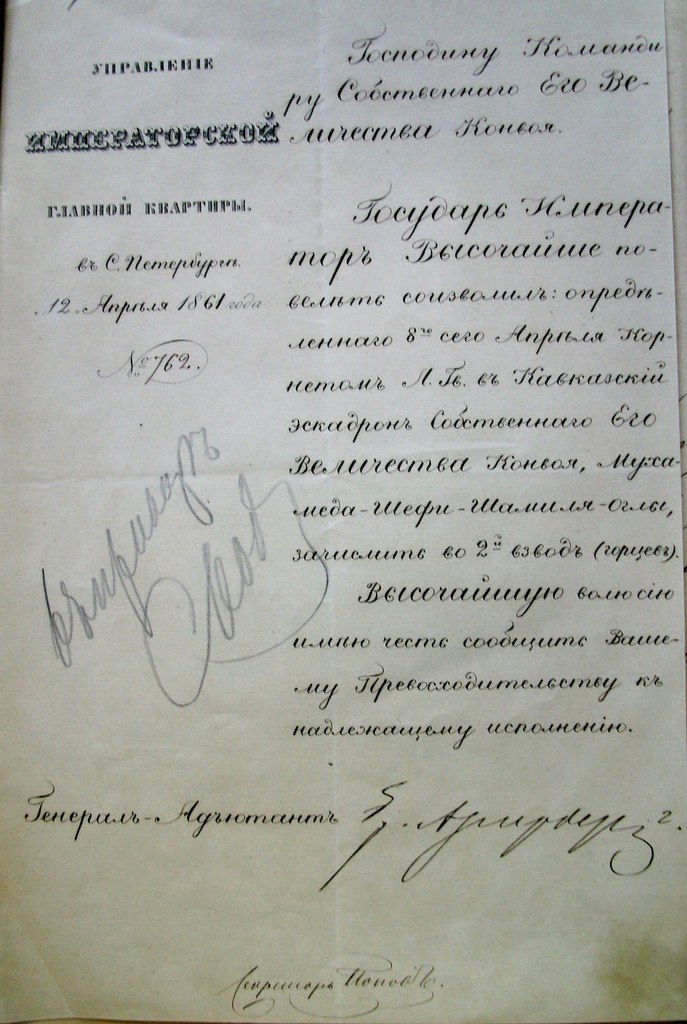 УПРАВЛЕНІЕ
ИМПЕРАТОРСКОЙ
ГЛАВНОЙ КВАРТИРЫ.
въ С. Петербургѣ.
12 Апрѣля 1861 года
№ 762.
Господину Команди
ру Собственнаго Его Ве-
личества Конвоя.
Государь Импера-
торъ Высочайше по-
велѣть соизволилъ: опредѣ-
леннаго 8го сего Апрѣля Кор-
нетомъ Л. Гв. въ Кавказскій
эскадронъ Собственнаго Его
Величества Конвоя, Муха-
меда-Шефи-Шамиля-оглы,
зачислить во 2й взводъ (горцевъ).
Высочайшую волю сію
имѣю честь сообщить Ваше-
му Превосходительству къ
надлежащему исполненію.
Генералъ-Адъютантъ
Секретарь Поповъ.